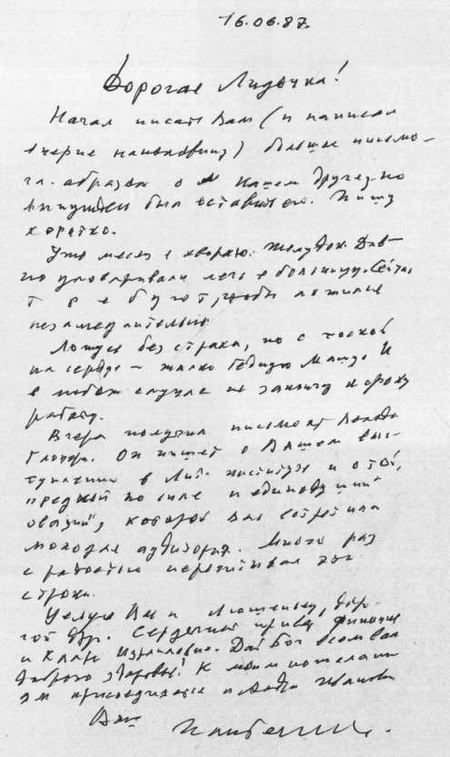 16.06.87.
Дорогая Лидочка!
Начал писать Вам (и написал
вчерне наполовину) большое письмо –
гл. образом о нашем друге, но
вынужден был оставить его. Пишу
коротко.
Уже месяц я хвораю. Желудок. Дав-
но уговаривали лечь в больницу. Сейчас
требуют, чтобы ложился
незамедлительно.
Ложусь без страха, но с тоской
на сердце – жалко бедную Машу. И
в любом случае не закончу к сроку
работу.
Вчера получил письмо от Володи
Глоцера. Он пишет о Вашем выс-
туплении в Лит. институте и о той,
редкой по силе и единодушию
овации, которой Вас встретила
молодая аудитория. Много раз
с радостью перечитывал эти
строки.
Целую Вас и Люшеньку,
Сердечный привет Финочке
и Кларе Израилевне. Дай Бог всем вам
доброго здоровья! К моим пожеланиям
присоединяется и
Ваш